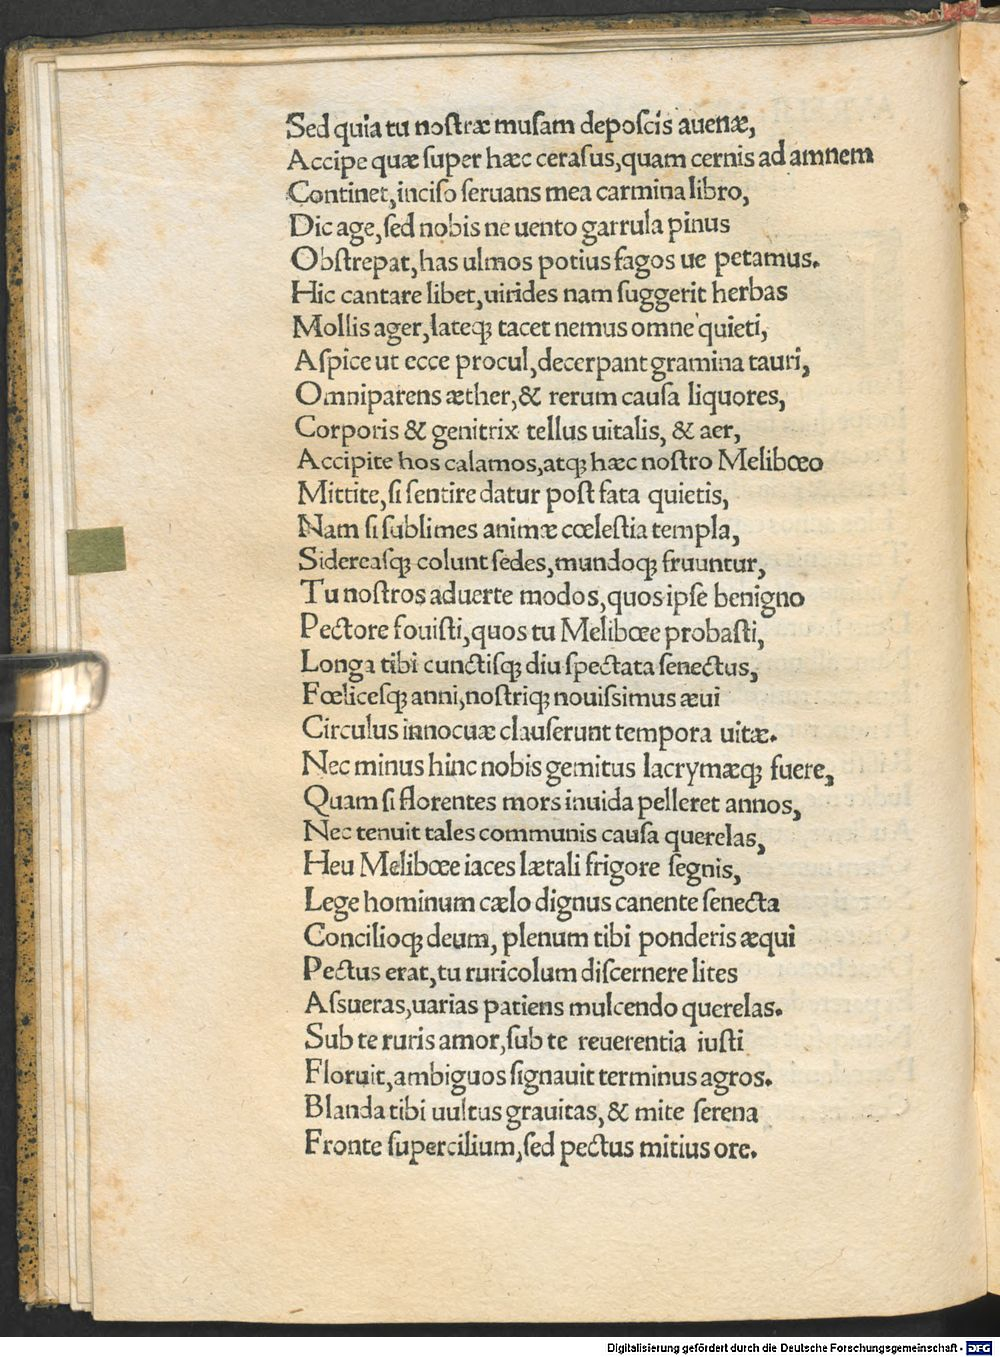 Sed quia tu nostræ musam deposcis auenæ,
Accipe quæ super hæc cerasus,quam cernis ad amnem
Continet,inciso seruans mea carmina libro,
Dic age,sed nobis ne uento garrula pinus
Obstrepat,has ulmos potius fagos ue petamus.
Hic cantare libet,uirides nam suggerit herbas
Mollis ager,lateq; tacet nemus omne quieti,
Aspice ut ecce procul,decerpant gramina tauri,
Omniparens æther,& rerum causa liquores,
Corporis & genitrix tellus uitalis, & aer,
Accipite hos calamos,atq; hæc nostro Melibœo
Mittite,si sentire datur post fata quietis,
Nam si sublimes animæ cœlestia templa,
Sidereasq; colunt sedes,mundoq; fruuntur,
Tu nostros aduerte modos,quos ipse benigno
Pectore fouisti,quos tu Melibœe probasti,
Longa tibi cunctisq; diu spectata senectus,
Fœlicesq; anni,nostriq; nouissimus æui
Circulus innocuæ clauserunt tempora uitæ.
Nec minus hinc nobis gemitus lacrymæq; fuere,
Quam si florentes mors inuida pelleret annos,
Nec tenuit tales communis causa querelas,
Heu Melibœe iaces lætali frigore segnis,
Lege hominum cælo dignus canente senecta
Concilioq; deum, plenum tibi ponderis æqui
Pectus erat,tu ruricolum discernere lites
Assueras,uarias patiens mulcendo querelas.
Sub te ruris amor,sub te reuerentia iusti
Floruit,ambiguos signauit terminus agros.
Blanda tibi uultus grauitas,& mite serena
Fronte supercilium,sed pectus mitius ore.
Digitalisierung gefördert durch die Deutsche Forschungsgemeinschaft - DFG